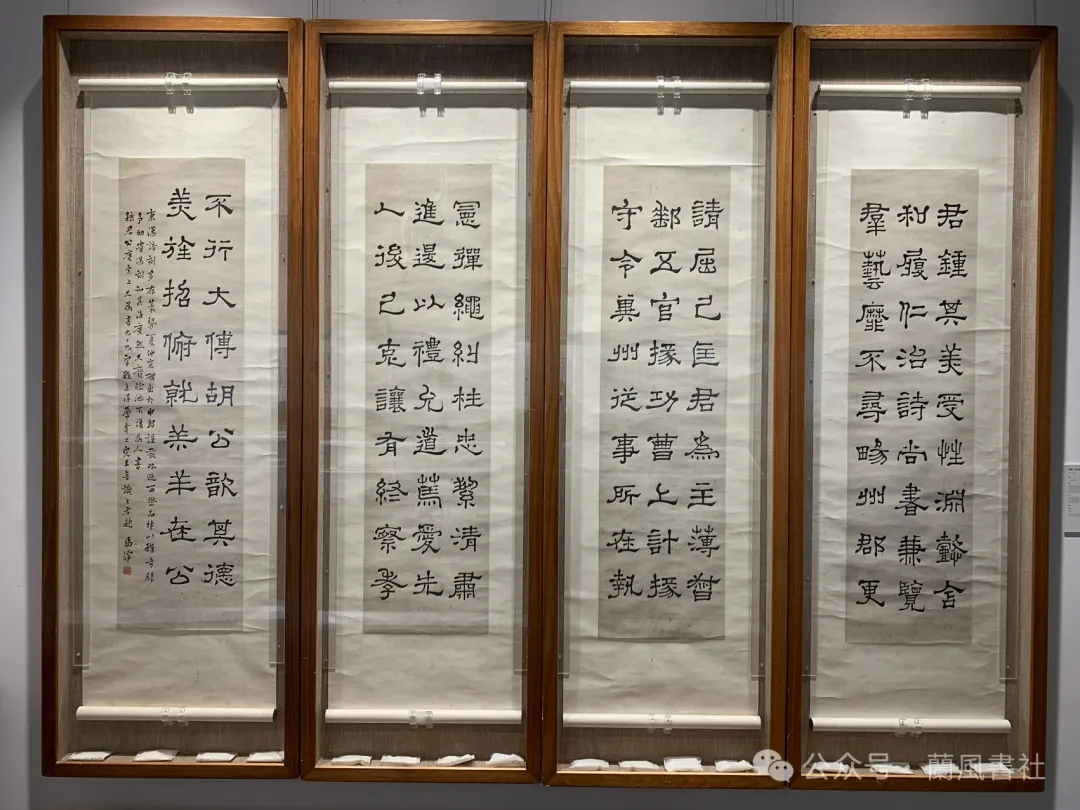 君鍾其美受性淵懿含
和履仁治詩尚書兼覽
羣藝靡不尋暢州郡更
請屈己匡君為主薄督
郵五官掾功曹上計掾
守令冀州從事所在執
憲彈繩糾枉忠絜清肅
進退以禮允道篤愛先
人後己克讓有終察孝
不行大傅胡公歆其德
美旌招俯就羔羊在公
公众号 · 蘭風書社